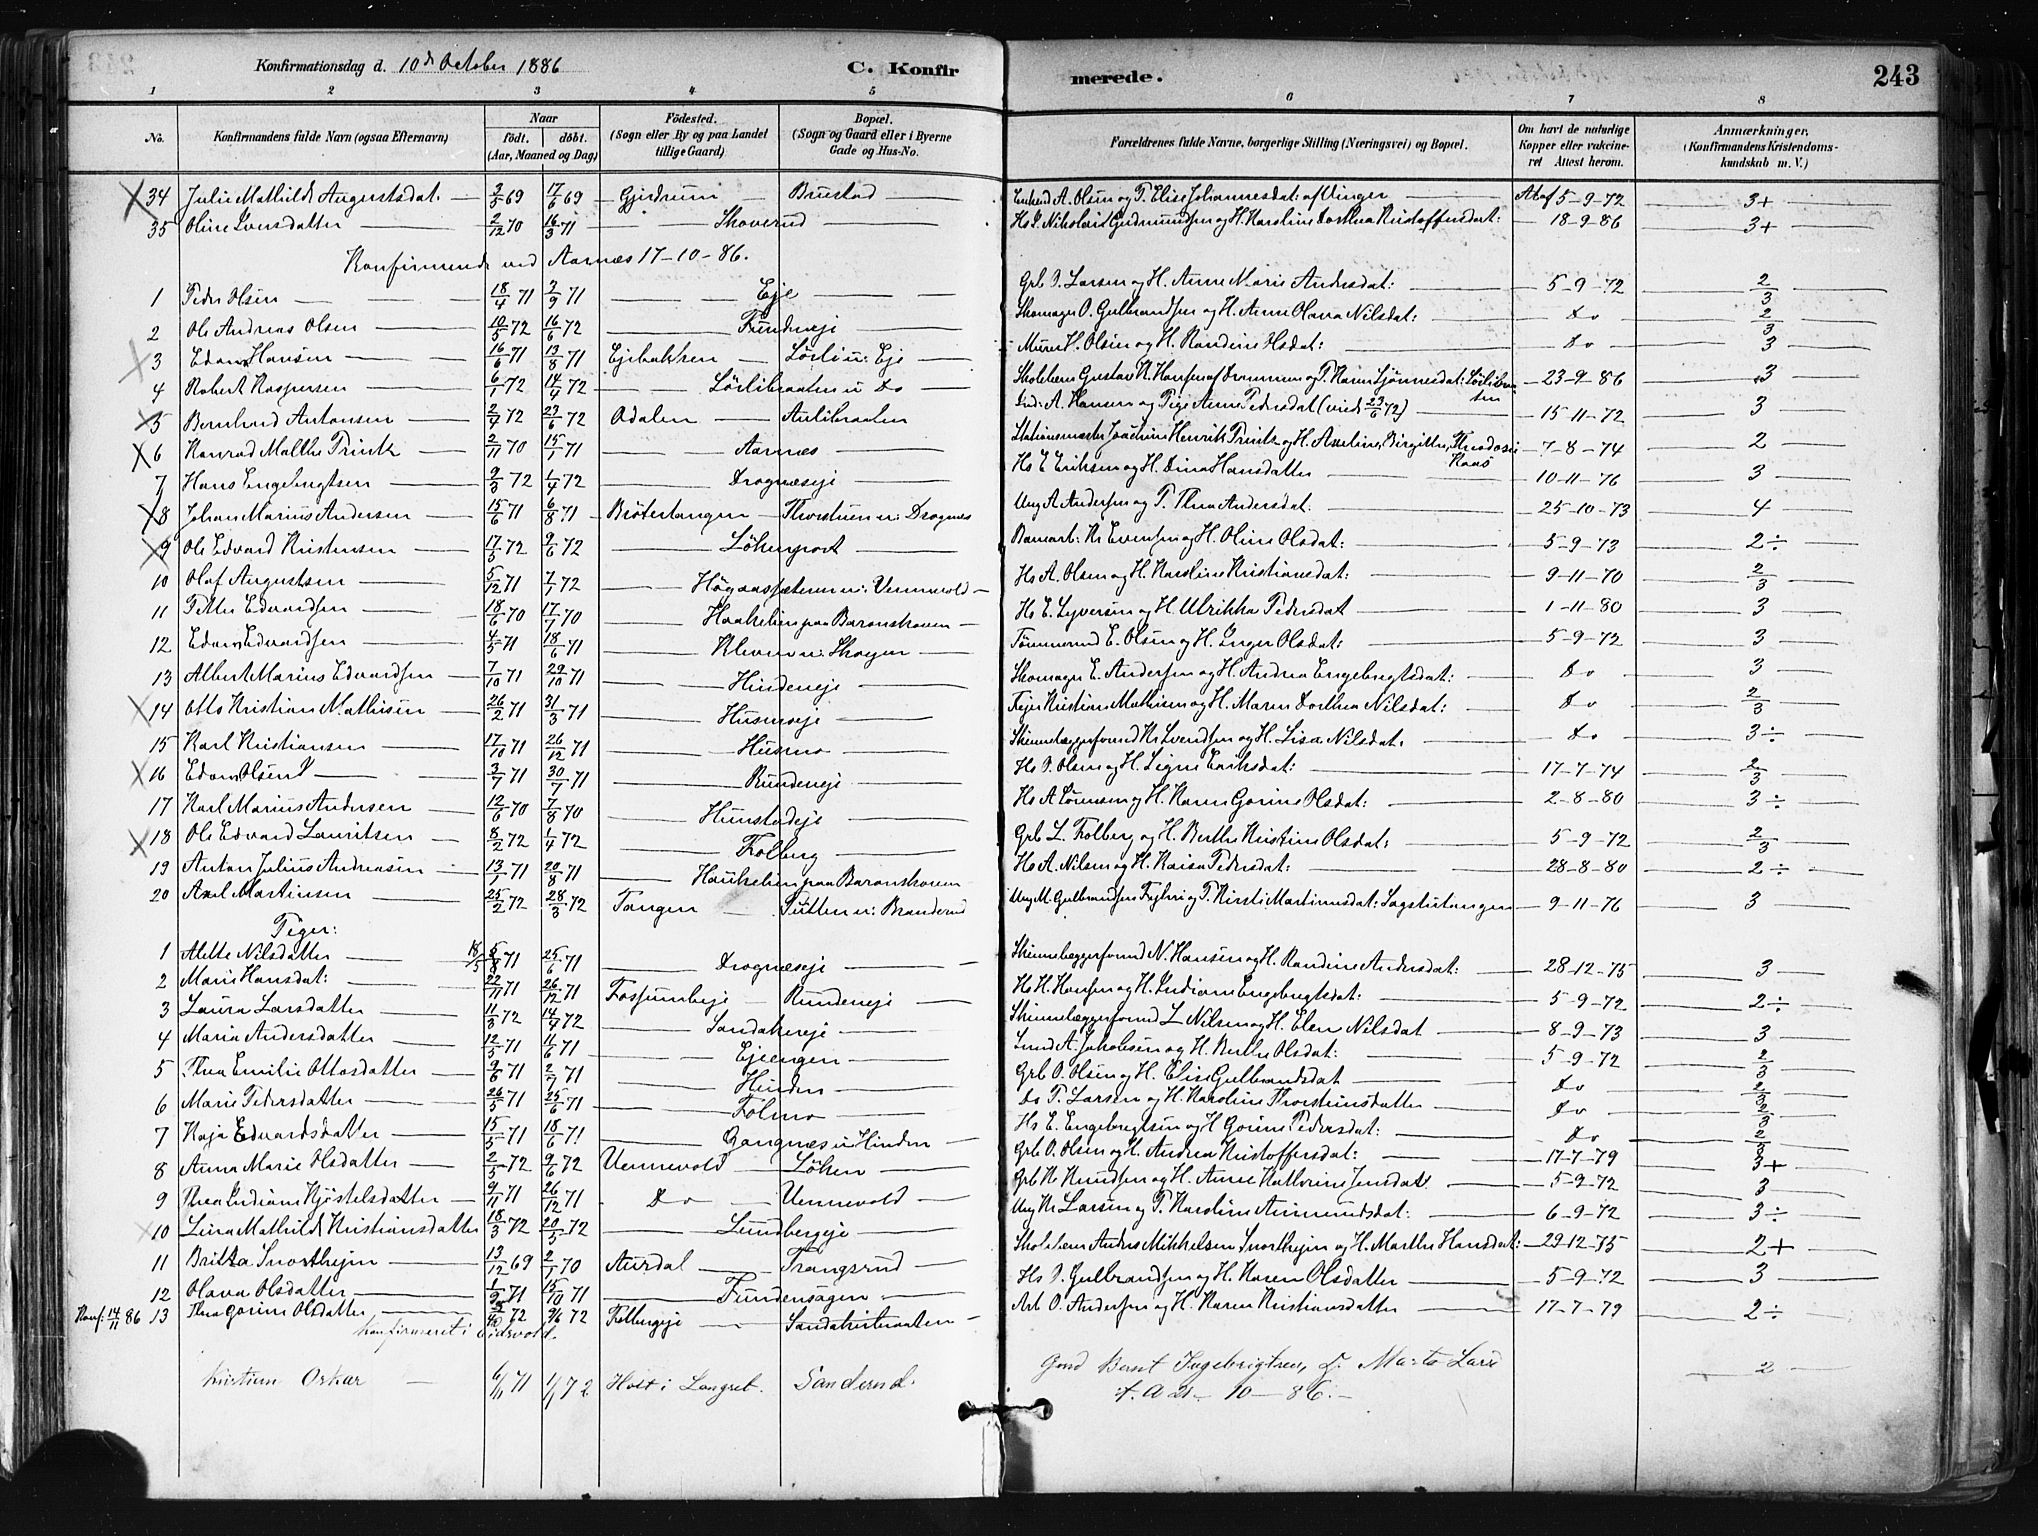 Konfirmationsdag d. 10d October 1886 C. Konfir merede. 243
1 2 3 4 5 6 7 8
No. Konfirmandens fulde Navn (ogsaa Efternavn) Naar født. døbt. (Aar, Maaned og Dag) Fødested. (Sogn eller By og paa Landet tillige Gaard) Bopæl. (Sogn og Gaard eller i Byerne Gade og Hus-No. Forældrenes fulde Navne, borgerlige Stilling (Næringsvei) og Bopæl. Om havt de naturlige Kopper eller vakcineret Attest herom. Anmærkninger. (Konfirmandens Kristendomskundskab m. V.)
34 Julie Mathilde Augustsdat. 3/3 69 17/6 69 Gjedrum Brustad Enkemd A. Olsen og P. Elise Johannesdat: af Vinger At af 5-9-72 3+
35 Oline Iversdatter 2/12 70 16/3 71 Skoverud Hs I. Nikolais Gudmundsen og H. Karoline Dorthea Kristoffersdat: 18-9-86 3+
Konfirmerede ved Aarnæs 17-10-86.
1 Peder Olsen 18/4 71 3/9 71 Eje Grb O. Larsen og H. Anne Marie Andersdat: 5-9-72 2/3
2 Ole Andreas Olsen 10/5 72 16/6 72 Fundeneje Skomager O. Gulbrandsen og H. Anne Olava Nilsdat: Do 2/3
3 Edvard Hansen 16/6 71 13/8 71 Ejebakken Lörli u: Eje Murer H. Olsen og H. Randine Olsdat: Do 3
4 Robert Kaspersen 6/1 72 14/4 72 Lörlibraaten u Do Skoleben Gustav K. Hansen af Drammen og P. Karen Tjönnesdat: Lörlibraaten 23-9-86 3
5 Bernhard Antonsen 2/4 72 23/6 72 Odalen Aulibraaten Ind: A. Hansen og Pige Anne Pedersdat (viede 23/6 72) 15-11-72 3
6 Konrad Malthe Printz 2/11 70 15/1 71 Aarnæs Stationsmester Joachim Henrik Printz og H. Axeline, Birgitte, Theodosie Kaas 7-8-74 2
7 Hans Engebregtsen 9/3 72 1/4 72 Drognæseje Hs E Eriksen og H. Dina Hansdatter 10-11-76 3
8 Johan Marius Andersen 15/6 71 6/8 71 Bröterlangen Thorstuen u: Drognæs Ung A. Andersen og P. Thea Andersdat. 25-10-73 4
9 Ole Edvard Kristensen 17/5 72 9/6 72 Lökenport Banearb: Kr Evensen og H. Oline Olsdat: 5-9-73 2÷
10 Olaf Augustsen 5/12 71 7/1 72 Högaassæteren u: Vennevold Hs A. Olsen og H. Karoline Kristiansdat: 9-11-70 2/3
11 Petter Edvardsen 18/6 70 17/7 70 Haukelien paa Baronskoven Hs E. Syversen og H. Ulrikka Pedersdat 1-11-80 3
12 Edvard Edvardsen 4/5 71 18/6 71 Kleven u: Skogen Tømmermd E. Olsen og H. Inger Olsdat: 5-9-72 3
13 Albert Marius Edvardsen 7/10 71 29/10 71 Hindeneje Skomager E. Andersen og H. Andrea Engebregtsdat: Do 3
14 Otto Kristian Mathisen 26/2 71 31/3 71 Husmoeje Fejer Kristian Mathisen og H. Maren Dorthea Nilsdat: Do 2/3
15 Karl Kristiansen 17/10 71 26/12 71 Husmo Skinnelæggerformd Kr Svendsen og H. Lisa Nilsdat. Do 3÷
16 Edvard Olsen 3/7 71 30/7 71 Rundeneje Hs O. Olsen og H. Signe Eriksdat: 17-7-74 2/3
17 Karl Marius Andersen 12/6 70 7/8 70 Hunstadeje Hs A Sörensen og H. Karen Gorine Olsdat: 2-8-80 3÷
18 Ole Edvard Lauritsen 8/2 72 1/4 72 Folberg Grb L. Folberg og H. Berthe Kristine Olsdat: 5-9-72 2/3
19 Anton Julius Andreasen 13/1 71 20/8 71 Haukelien paa Baronskoven Hs A. Nilsen og H. Kaisa Pedersdat: 28-8-80 2÷
20 Axel Martinsen 25/2 72 28/3 72 Tangen Putten u: Branderud Ung M. Gulbrandsen og P. Kirsti Martinusdat: Sagstutangen 9-11-76 3
Piger:
1 Alette Nilsdatter 18/5 71 25/6 71 Drognæseje Skinnelæggerformd N. Hansen og H. Randine Andersdat: 28-12-75 3
2 Marie Hansdat: 22/11 71 26/12 71 Fossumeje Rundeneje Hs H. Hansen og H. Indiane Engebregtsdat: 5-9-72 2÷
3 Laura Larsdatter 11/3 72 14/4 72 Sandakereje Skinnelæggerformd L Nilsen og H. Elen Nilsdat 8-9-73 3
4 Maria Andersdatter 12/5 71 11/6 71 Ejeengen Smed A. Jakobsen og H. Berthe Olsdat: 5-9-72 2/3
5 Thea Emilie Ottosdatter 9/6 71 2/7 71 Hinden Grb O. Olsen og H. Elise Gulbrandsdat Do 2/3
6 Marie Pedersdatter 26/5 71 25/6 71 Folmo Do P. Larsen og H. Karoline Thorstensdatter Do 2/3
7 Kaja Edvardsdatter 15/5 71 18/6 71 Gangnæs u Hinden Hs E. Engebregtsen og H Gorine Pedersdat: Do 2/3
8 Anna Marie Olsdatter 2/5 72 9/6 72 Vennevold Löken Grb O. Olsen og H. Andrea Kristoffersdat: 17-7-79 3+
9 Thea Indiane Kjöstelsdatter 9/11 71 26/12 71 Do Vennevold Grb K Knudsen og H. Anne Kathrine Jensdat 5-9-72 3
10 Lina Mathilde Kristiansdatter 18/3 72 20/5 72 Lundbergeje Ung Kr Larsen og P. Karoline Ammundsdat: 6-9-72 3÷
11 Britta Snorthejm 13/12 69 2/1 70 Aurdal Frangsrud Skoleben Anders Mikkelsen Snorthejm og H. Marthe Hansdat: 29-12-75 2+
12 Olava Olsdatter 1/9 71 15/10 71 Fundensagen Hs O. Gulbrandsen og H. Karen Olsdatter 5-9-72 3
Konf: 14/11 86 13 Thea Gorine Olsdatter 72 9/6 72 Folbergeje Sandakerbraaten Arb O. Andersen og H. Karen Kristiansdatter 17-7-79 2÷
konfirmeret i Eidsvold.
Kristian Oskar 6/11 71 1/1 72 Holt i Langset. Sanderud. Gmd Bernt Ingebrigtsen, Marte Lars 2
A 21-10-86.